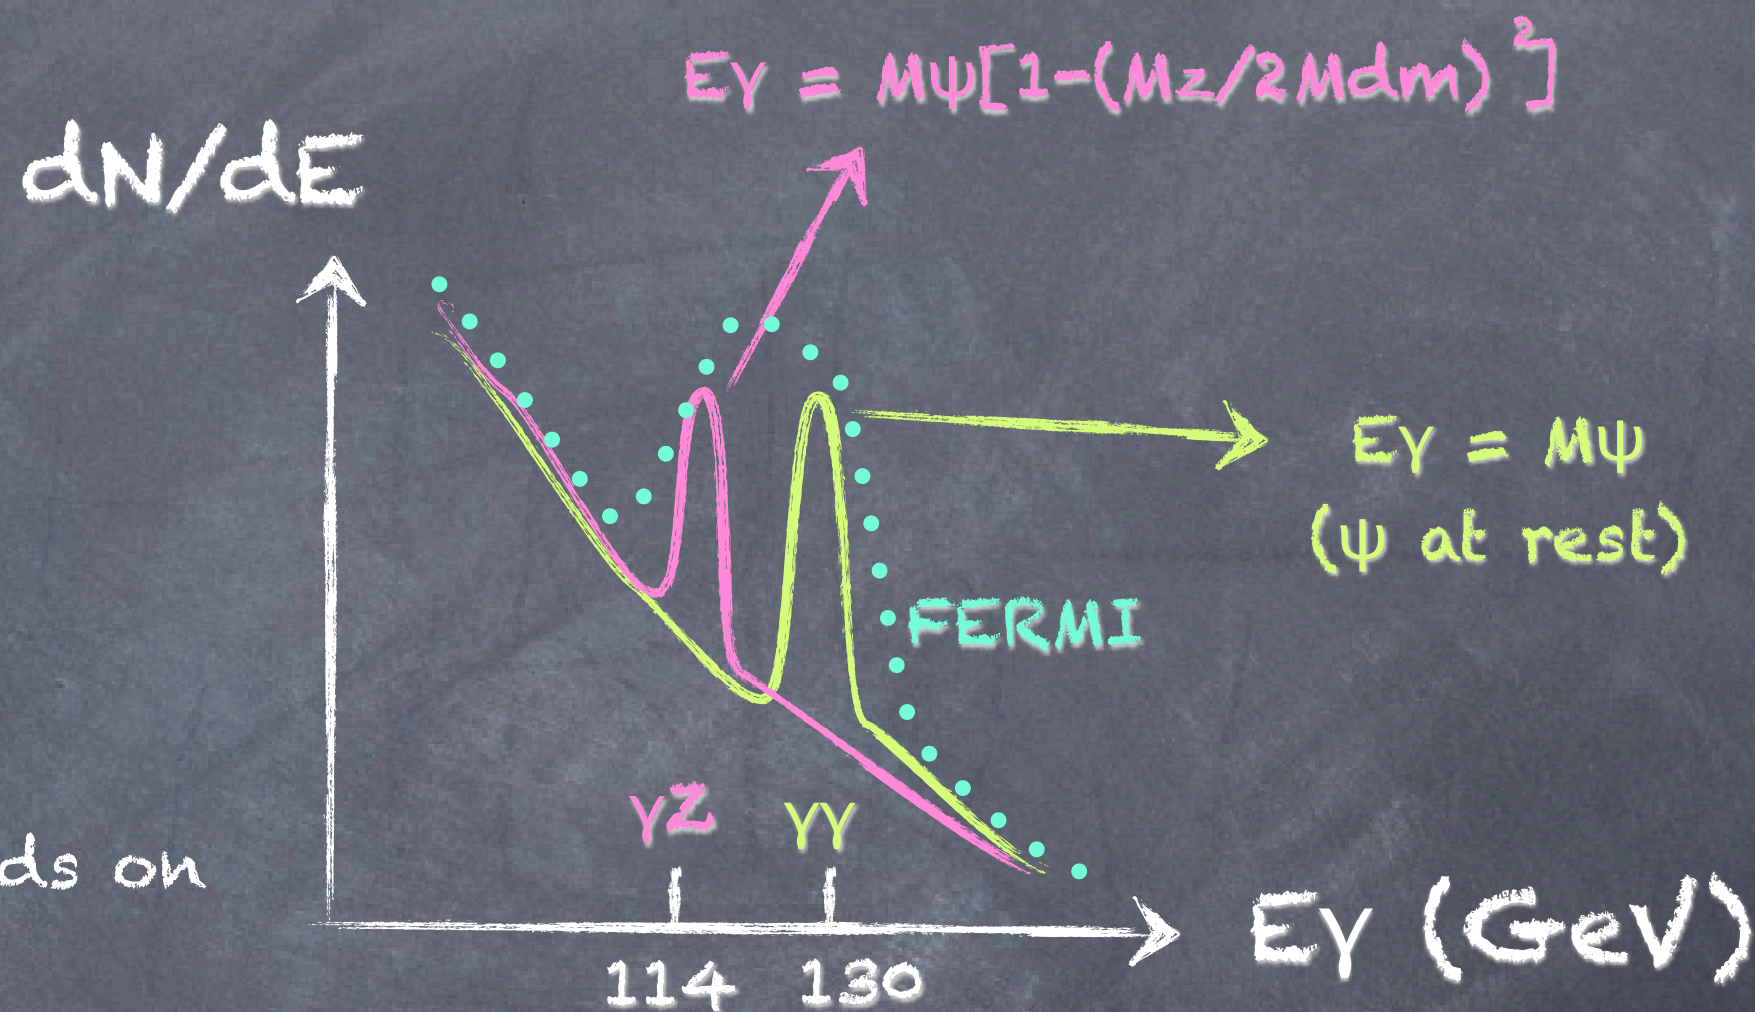 Eγ = Mψ[1-(Mz/2Mdm)²]
dN/dE
Eγ = Mψ
(ψ at rest)
FERMI
γZ γγ
ds on
Eγ (GeV)
114 130